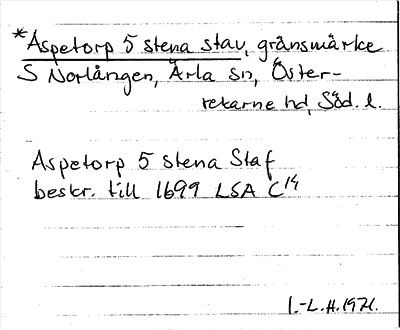 *Aspetorp 5 stena stav, gränsmärke
S Norlången, Ärla sn, Öster-
rekarne hd, Söd. l.
Aspetorp 5 stena Staf
beskr. till 1699 LSA C¹⁴
I.-L.H. 1971.